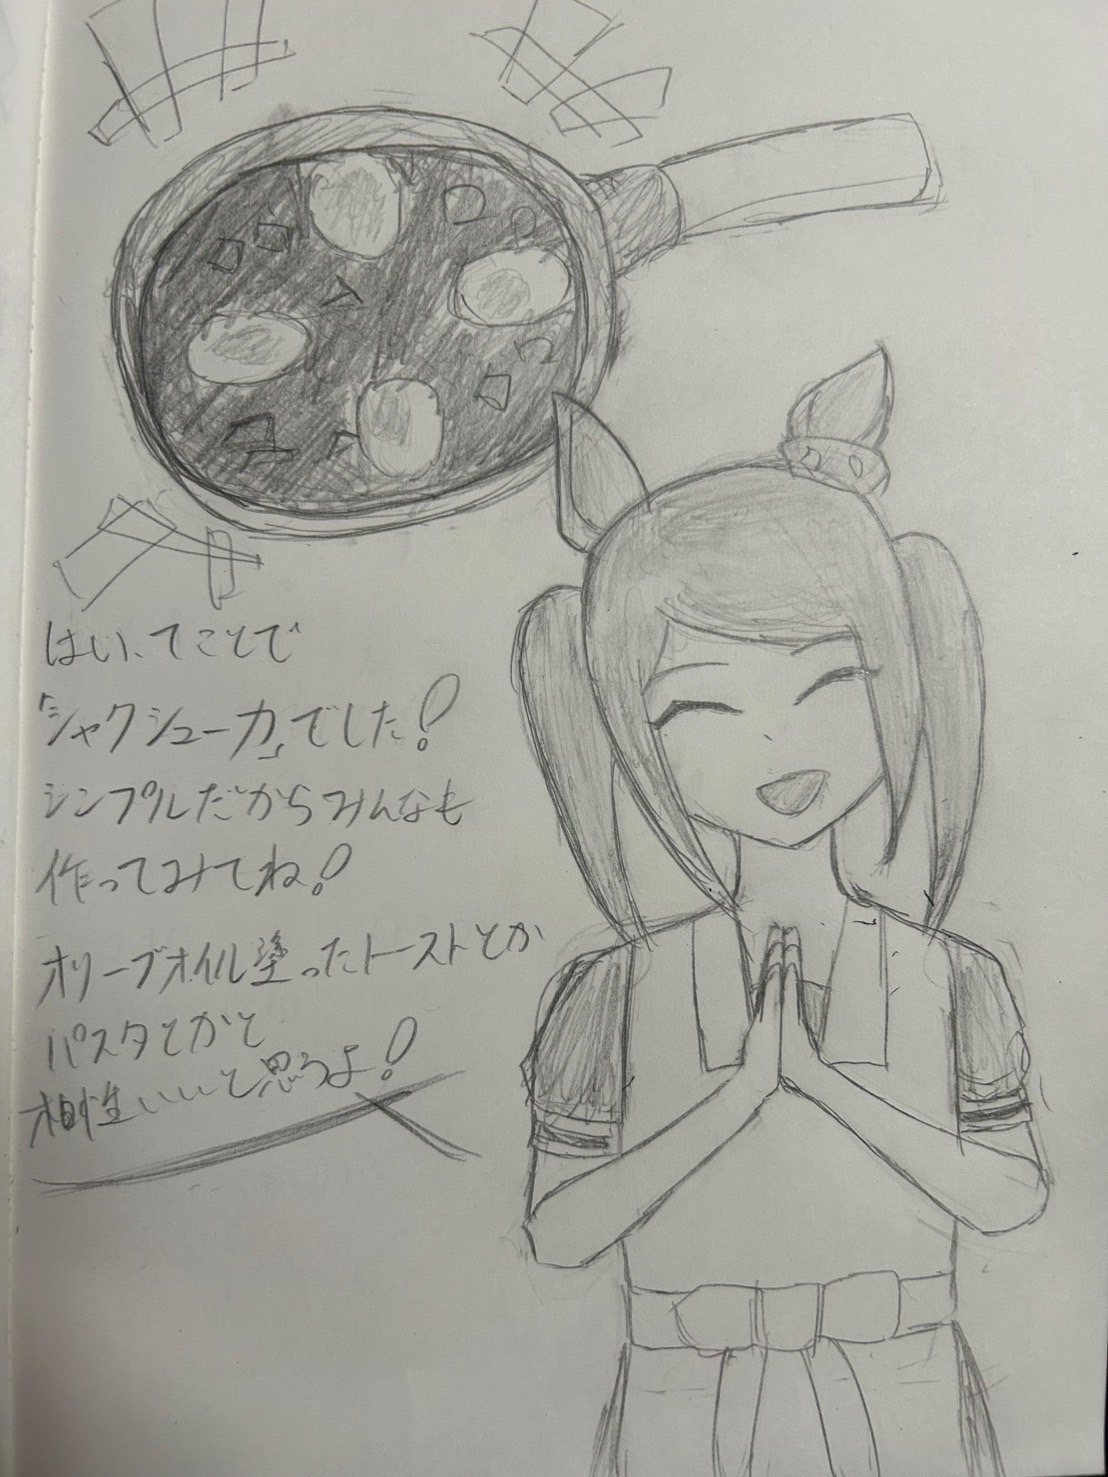 はい、てことで
「シャクシューカ」でした!
シンプルだからみんなも
作ってみてね!
オリーブオイル塗ったトーストとか
パスタとかと
相性いいと思うよ!